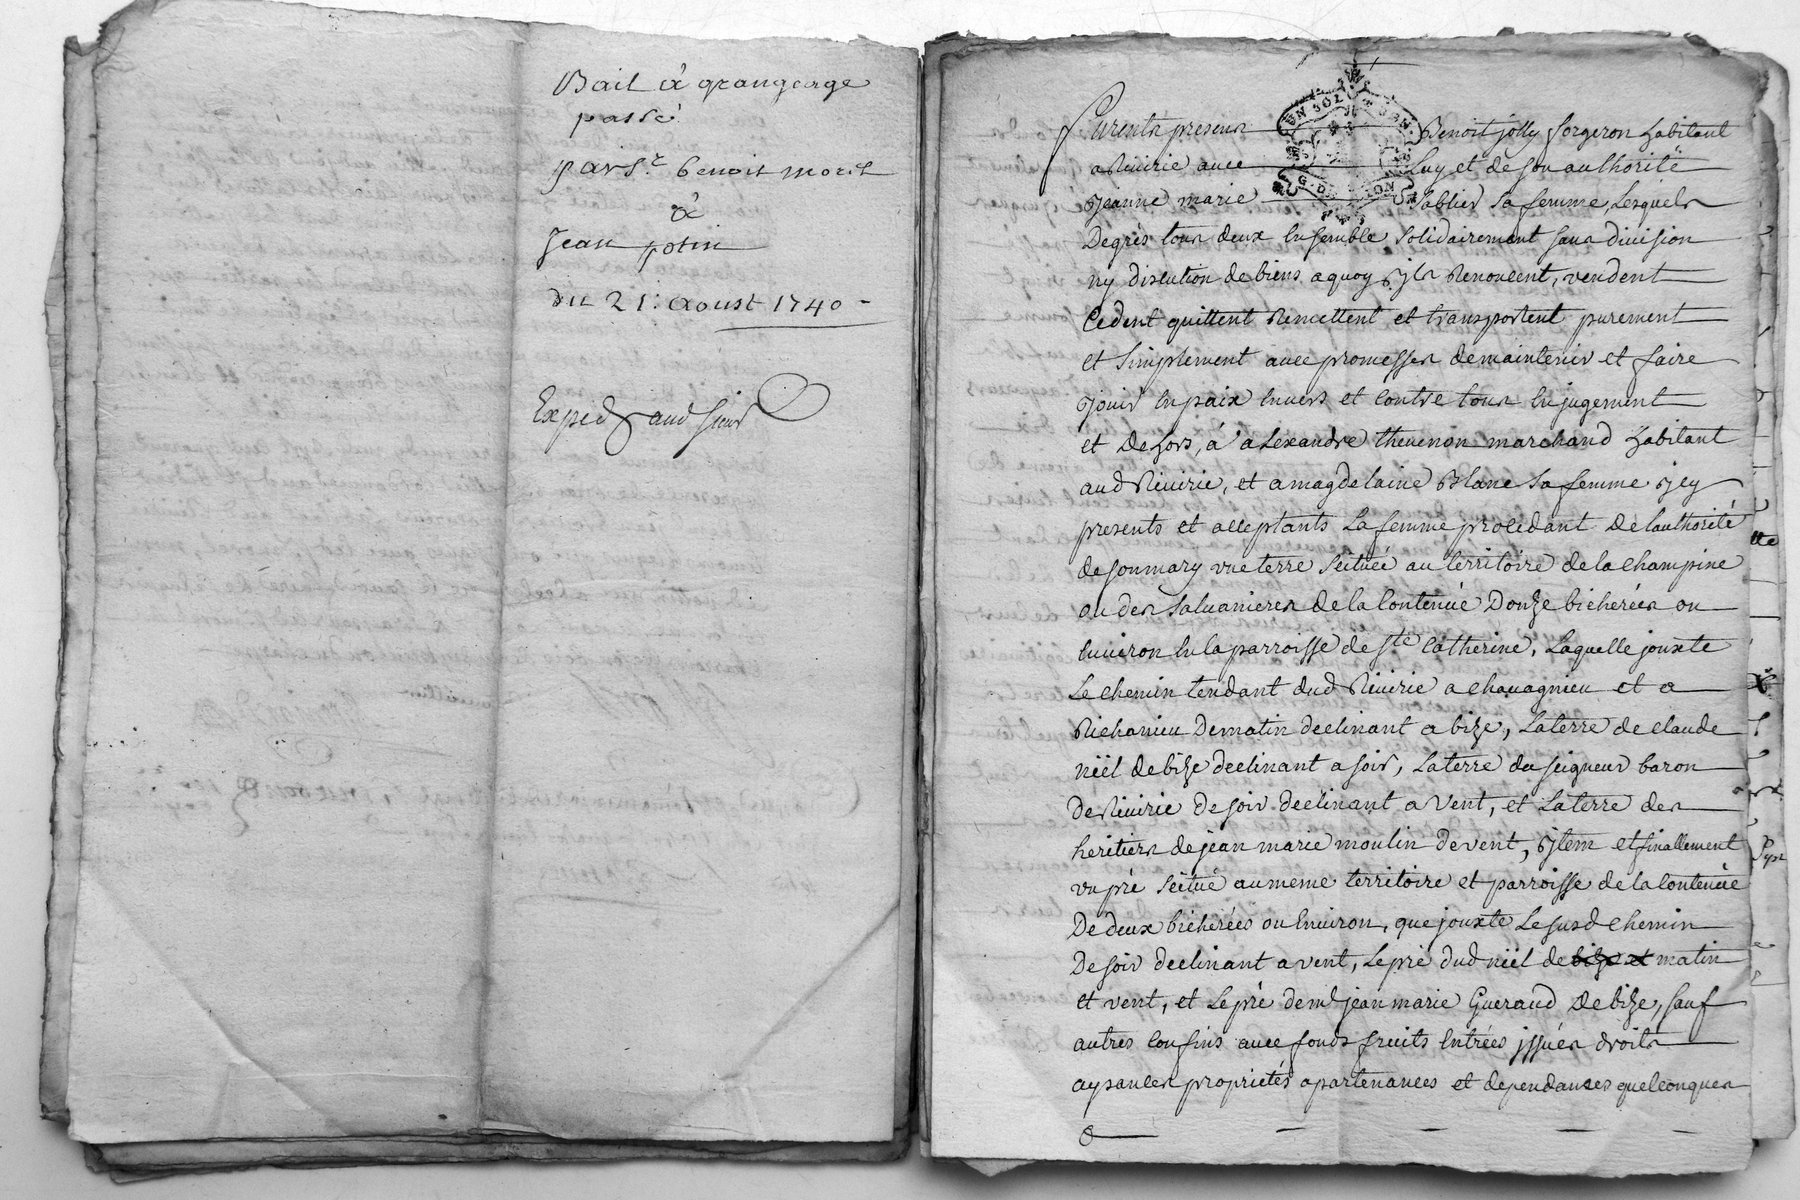 Bail a grangeage
passé
par s.r benoit morel
a
Jean potin
du 21: aoust 1740 -
Exped aud sieur
UN SOL
G. DE LYON
furents presens Benoit jolly forgeron habitant
a Riuirie auec Luy et de son authorité
Jeanne marie Sablier sa femme, Lesquels
De grés tous deux Ensemble solidairement sans diuision
ny discution de biens a quoy jls Renoncent, vendent
Cedent quittent Remettent et transportent purement
et simplement auec promesses de maintenir et faire
jouir En paix Enuers et Contre tous En jugement
et Dehors, á alexandre theuenon marchand habitant
aud Riuirie, et a magdelaine Blanc sa femme jcy
presents et acceptants La femme procedant De l'authorité
de son mary vne terre scituée au territoire de la Champine
ou des saluanieres de la Contenüe Donze bicherées ou
Enuiron En la parroisse de Ste Catherine, Laquelle jouxte
Le chemin tendant dud Riuirie a chauagnieu et a
Richanieu De matin declinant a bize, La terre de claude
niël de bize declinant a soir, La terre du seigneur baron
de Riuirie de soir declinant a vent, et La terre des
heritiers de jean marie moulin de vent, jtem et finallement
vn pré scitué au meme territoire et parroisse de la Contenüe
De deux bicherées ou Enuiron, que jouxte Le susd chemin
De soir declinant a vent, Le pré dud niël de bize et matin
et vent, et Le pré de mr jean marie Gueraud De bize, sauf
autres Confins auec fonds fruits Entrées jssües droits
aysances proprietés apartenances et dependances quelconques